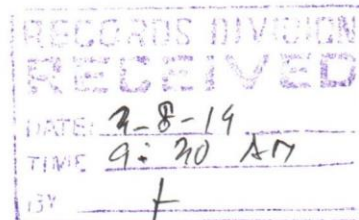 RECORDS DIVISION
RECEIVED
DATE: 3-8-19
TIME 9:30 AM
BY